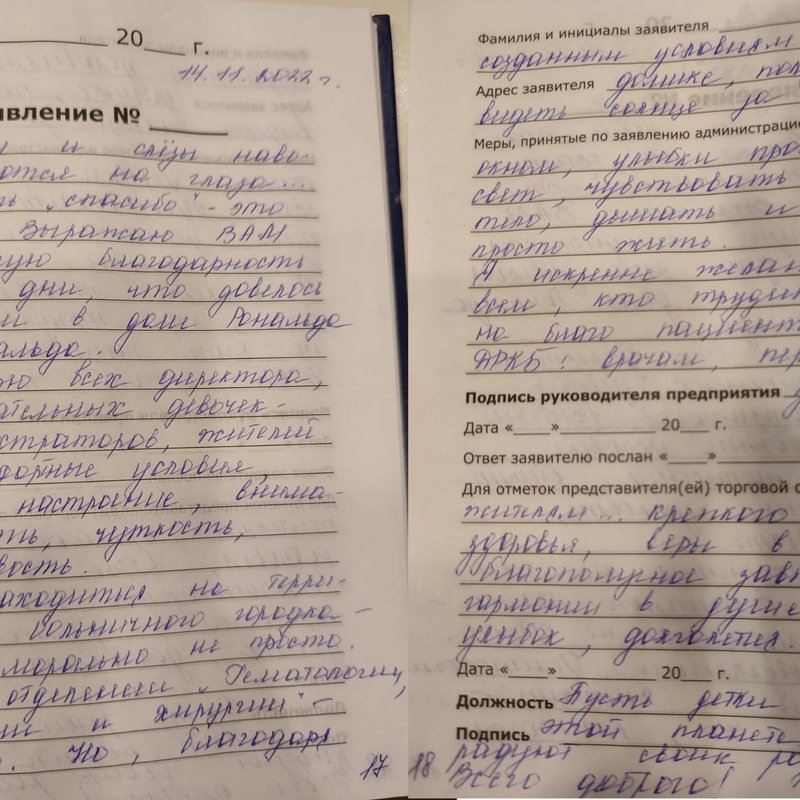 20___ г.
14.11.2022 г.
вление № ____
и слёзы наво-
ятся на глаза...
ь „спасибо" - это
Выражаю ВАМ
ую благодарность
дни, что довелось
и в доме Рональда
альда.
ю всех директора,
ательных девочек -
страторов, жителей
фортные условия,
настроение, внима-
ть, чуткость,
вость.
аходиться на терри-
больничного городка -
морально не просто.
отделении „Гематологии,
ии и хирургии" -
. Но, благодаря
17
Фамилия и инициалы заявителя
созданным условиям
Адрес заявителя домике, пом
видеть солнце за
Меры, принятые по заявлению администрацие
окном, улыбки про
свет, чувствовать
тепло, дышать и
просто жить.
И искренне желаю
всем, кто трудит
на благо пациент
ДРКБ: врачам, пер
Подпись руководителя предприятия
Дата «___»________ 20___ г.
Ответ заявителю послан «___»
Для отметок представителя(ей) торговой о
жителям... крепкого
здоровья, веры в
благополучное завт
гармонии в душе
улыбок, долголетия.
Дата «___»________ 20___ г.
Должность Пусть детки
Подпись этой планете
радуют своих ро
18 Всего доброго!